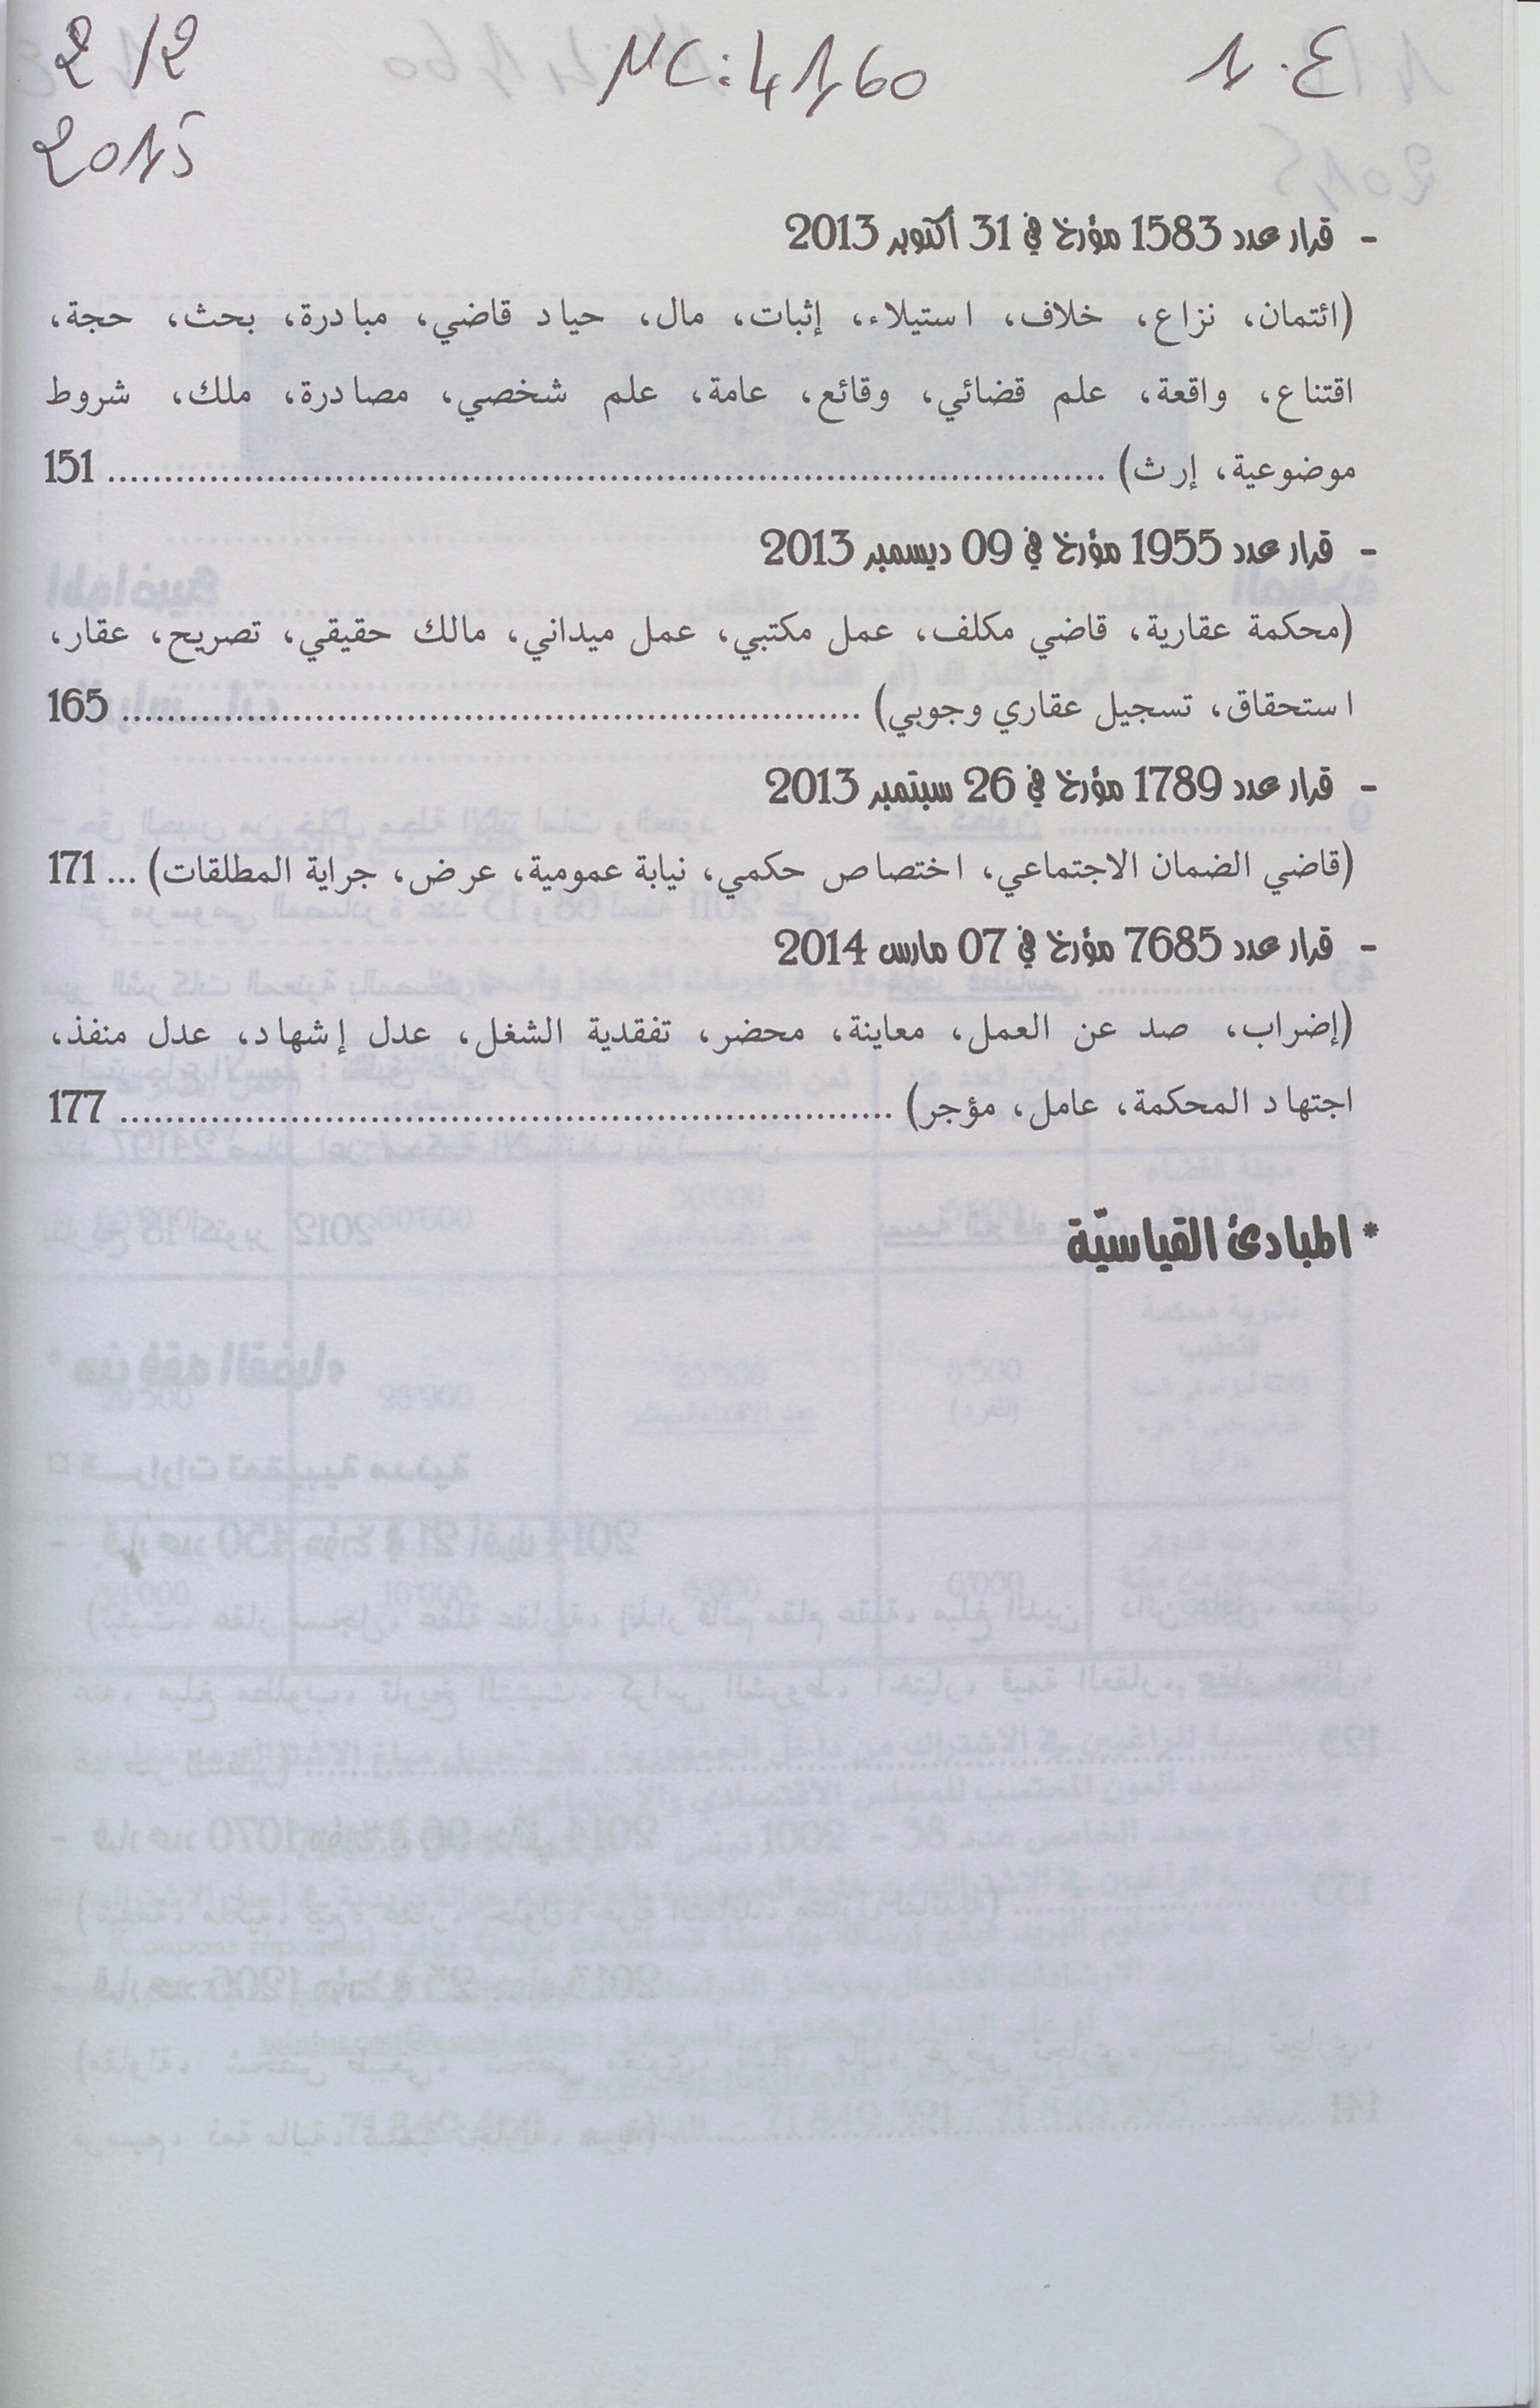 2/2
MC: 4160
1. E
2015
- قرار عدد 1583 مؤرخ في 31 أكتوبر 2013
(ائتمان، نزاع، خلاف، استيلاء، إثبات، مال، حياد قاضي، مبادرة، بحث، حجة،
اقتناع، واقعة، علم قضائي، وقائع، عامة، علم شخصي، مصادرة، ملك، شروط
موضوعية، إرث) ........................................ 151
- قرار عدد 1955 مؤرخ في 09 ديسمبر 2013
(محكمة عقارية، قاضي مكلف، عمل مكتبي، عمل ميداني، مالك حقيقي، تصريح، عقار،
استحقاق، تسجيل عقاري وجوبي) ........................................ 165
- قرار عدد 1789 مؤرخ في 26 سبتمبر 2013
(قاضي الضمان الاجتماعي، اختصاص حكمي، نيابة عمومية، عرض، جراية المطلقات) ... 171
- قرار عدد 7685 مؤرخ في 07 مارس 2014
(إضراب، صد عن العمل، معاينة، محضر، تفقدية الشغل، عدل إشهاد، عدل منفذ،
اجتهاد المحكمة، عامل، مؤجر) ........................................ 177
* المبادئ القياسيّة